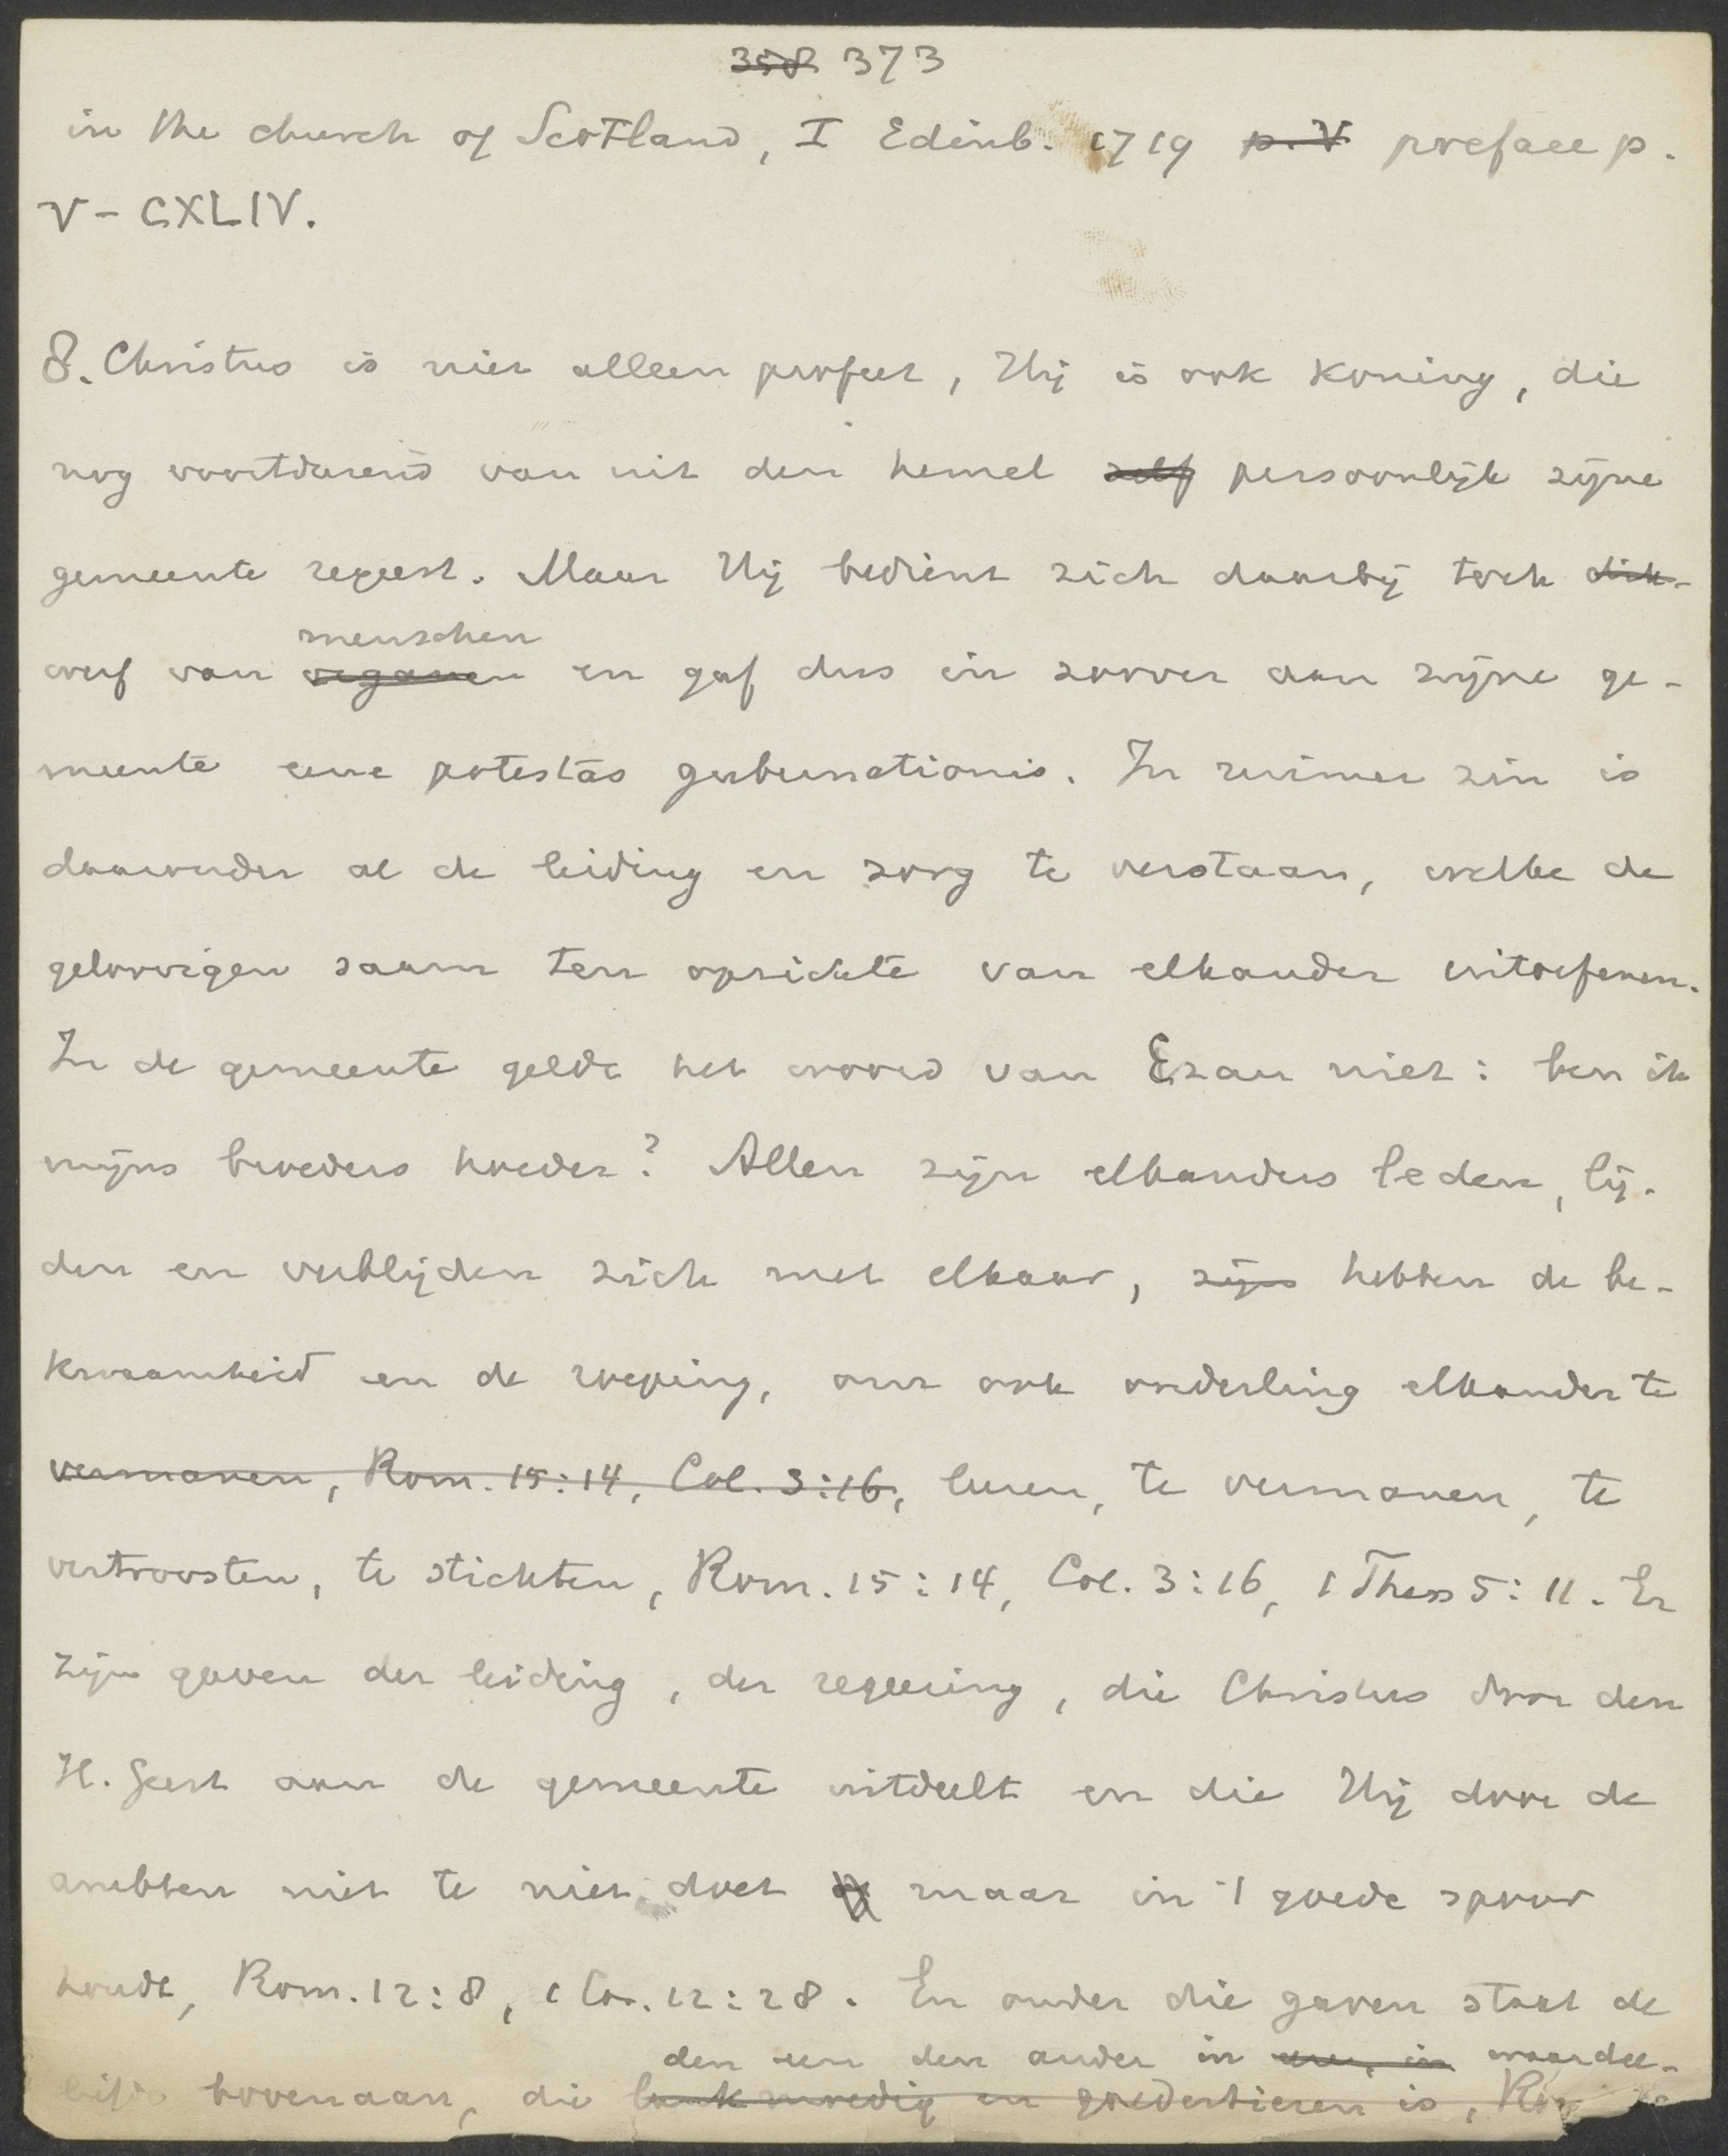 358 373
in the church of Scotland, I Edinb. 1719 p. V preface p.
V - CXLIV.
8. Christus is niet alleen profeet, Hij is ook koning, die
nog voortdurend van uit den hemel zelf persoonlijk zijne
gemeente regeert. Maar Hij bedient zich daarbij toch dik-
menschen
werf van organen en gaf dus in zoover aan zijne ge-
meente eene potestas gubernationis. In ruimer zin is
daaronder al de leiding en zorg te verstaan, welke de
geloovigen saam ten opzichte van elkander uitoefenen.
In de gemeente geldt het woord van Ezau niet: ben ik
mijns broeders hoeder? Allen zijn elkanders leden, lij-
den en verblijden zich met elkaar, zijn hebben de be-
kwaamheid en de roeping, om ook onderling elkander te
vermanen, Rom. 15:14, Col. 3:16, leeren, te vermanen, te
vertroosten, te stichten, Rom. 15:14, Col. 3:16, 1 Thess 5:11. Er
zijn gaven der leiding, der regeering, die Christus door den
H. Geest aan de gemeente uitdeelt en die Hij door de
ambten niet te niet doet maar in 't goede spoor
houdt, Rom. 12:8, 1 Cor. 12:28. En onder die gaven staat de
den een den ander in eer, in waardee-
liefde bovenaan, die lankmoedig en goedertieren is,